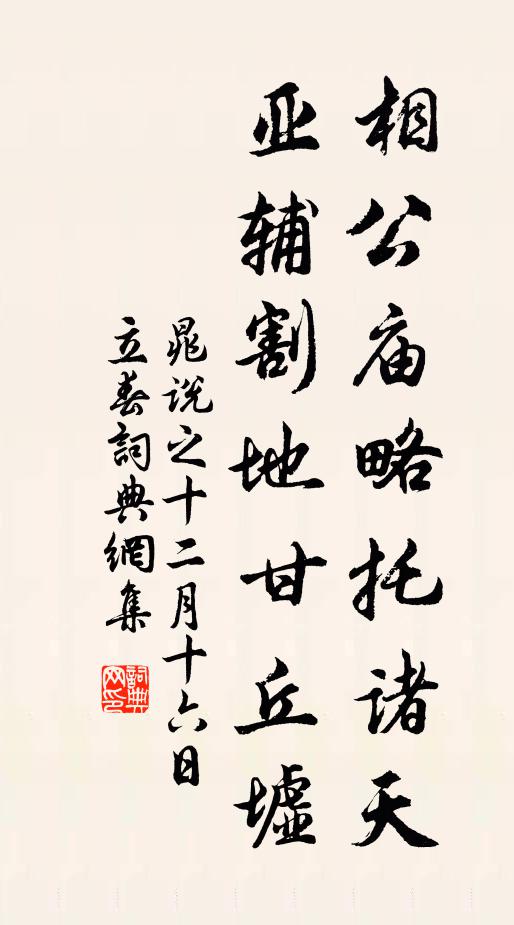 相公庙略托诸天
亚辅割地甘丘墟
晁说之十二月十六日
立春詞典網集
詞典网印